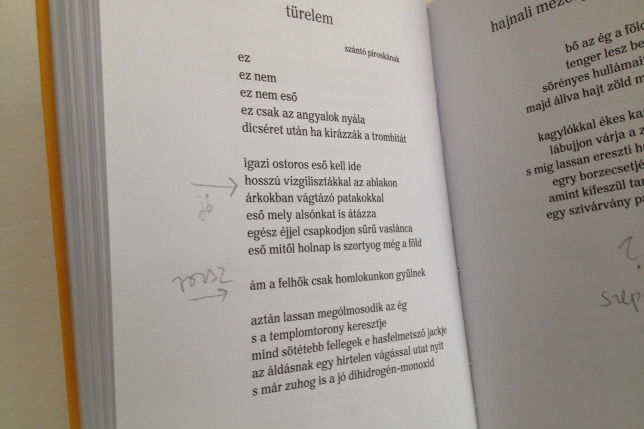 türelem
szántó piroskának
ez
ez nem
ez nem eső
ez csak az angyalok nyála
dicséret után ha kirázzák a trombitát
igazi ostoros eső kell ide
hosszú vízgilisztákkal az ablakon
jó
árkokban vágtázó patakokkal
eső mely alsónkat is átázza
egész éjjel csapkodjon sűrű vaslánca
eső mitől holnap is szortyog még a föld
rossz
ám a felhők csak homlokunkon gyűlnek
aztán lassan mególmosodik az ég
s a templomtorony keresztje
mind sötétebb fellegek e hasfelmetsző jackje
az áldásnak egy hirtelen vágással utat nyit
s már zuhog is a jó dihidrogén-monoxid
hajnali
bő az ég a föld
tenger lesz
sörényes
majd állva hajt zöld
kagylókkal ékes
lábujjon várja a
s míg lassan ereszti
egry
amint kifeszül
egy szivárvány
?
szép